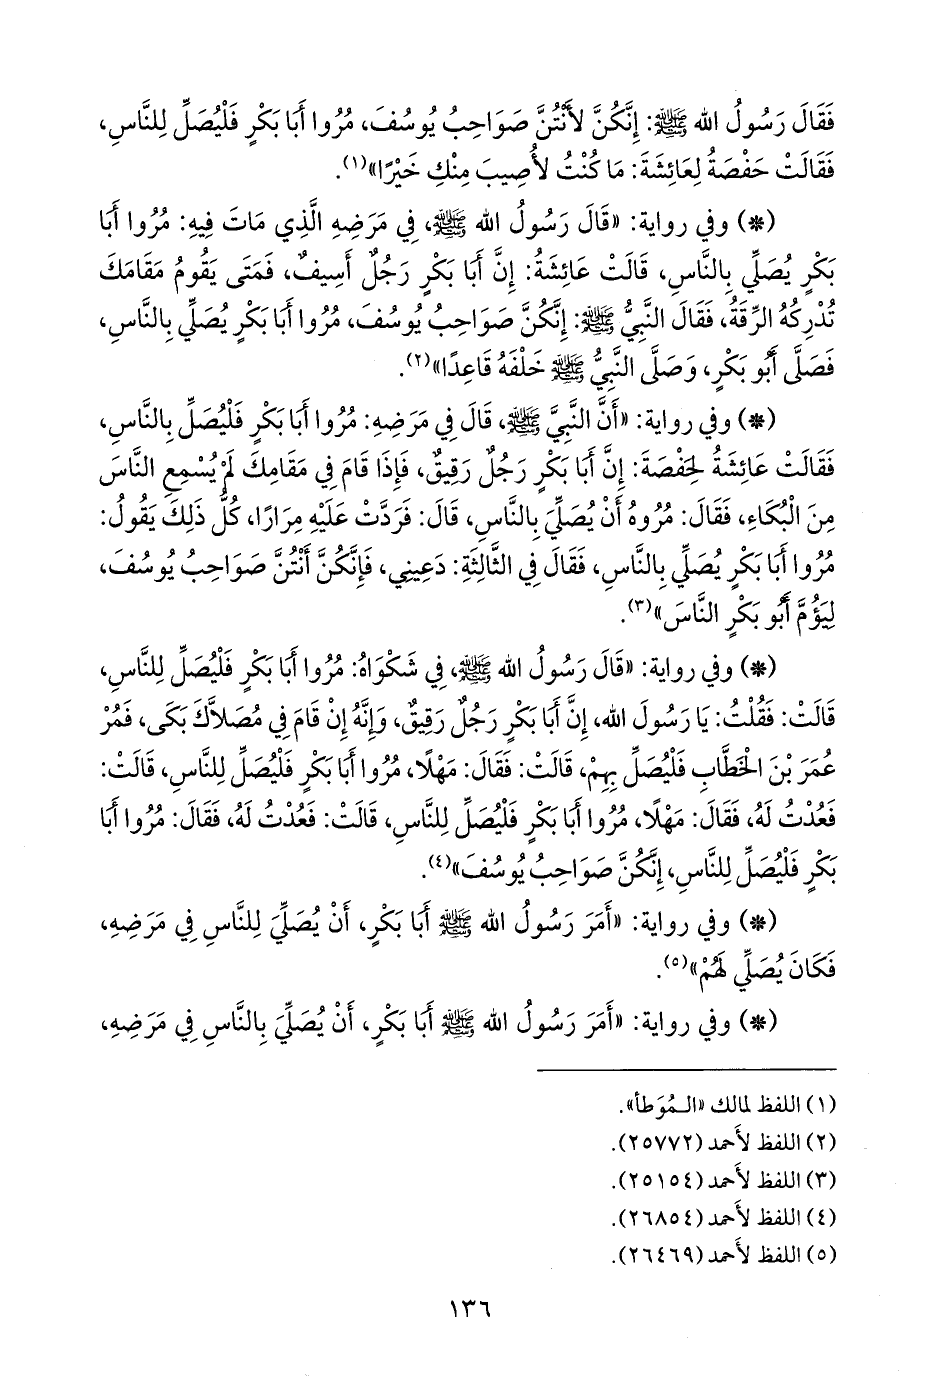 فَقَالَ رَسُولُ الله ﷺ: إِنَّكُنَّ لأَنْتُنَّ صَوَاحِبُ يُوسُفَ، مُرُوا أَبَا بَكْرٍ فَلْيُصَلِّ لِلنَّاسِ،
فَقَالَتْ حَفْصَةُ لِعَائِشَةَ: مَا كُنْتُ لأُصِيبَ مِنْكِ خَيْرًا»(١).
(*) وفي رواية: «قَالَ رَسُولُ الله ﷺ، فِي مَرَضِهِ الَّذِي مَاتَ فِيهِ: مُرُوا أَبَا
بَكْرٍ يُصَلِّي بِالنَّاسِ، قَالَتْ عَائِشَةُ: إِنَّ أَبَا بَكْرٍ رَجُلٌ أَسِيفٌ، فَمَتَى يَقُومُ مَقَامَكَ
تُدْرِكُهُ الرِّقَةُ، فَقَالَ النَّبِيُّ ﷺ: إِنَّكُنَّ صَوَاحِبُ يُوسُفَ، مُرُوا أَبَا بَكْرٍ يُصَلِّي بِالنَّاسِ،
فَصَلَّى أَبُو بَكْرٍ، وَصَلَّى النَّبِيُّ ﷺ خَلْفَهُ قَاعِدًا»(٢).
(*) وفي رواية: «أَنَّ النَّبِيَّ ﷺ، قَالَ فِي مَرَضِهِ: مُرُوا أَبَا بَكْرٍ فَلْيُصَلِّ بِالنَّاسِ،
فَقَالَتْ عَائِشَةُ لِحَفْصَةَ: إِنَّ أَبَا بَكْرٍ رَجُلٌ رَقِيقٌ، فَإِذَا قَامَ فِي مَقَامِكَ لَمْ يُسْمِعِ النَّاسَ
مِنَ الْبُكَاءِ، فَقَالَ: مُرُوهُ أَنْ يُصَلِّيَ بِالنَّاسِ، قَالَ: فَرَدَّتْ عَلَيْهِ مِرَارًا، كُلُّ ذَلِكَ يَقُولُ:
مُرُوا أَبَا بَكْرٍ يُصَلِّي بِالنَّاسِ، فَقَالَ فِي الثَّالِثَةِ: دَعِينِي، فَإِنَّكُنَّ أَنْتُنَّ صَوَاحِبُ يُوسُفَ،
لِيَؤُمَّ أَبُو بَكْرٍ النَّاسَ»(٣).
(*) وفي رواية: «قَالَ رَسُولُ الله ﷺ، فِي شَكْوَاهُ: مُرُوا أَبَا بَكْرٍ فَلْيُصَلِّ لِلنَّاسِ،
قَالَتْ: فَقُلْتُ: يَا رَسُولَ الله، إِنَّ أَبَا بَكْرٍ رَجُلٌ رَقِيقٌ، وَإِنَّهُ إِنْ قَامَ فِي مُصَلاَّكَ بَكَى، فَمُرْ
عُمَرَ بْنَ الْخَطَّابِ فَلْيُصَلِّ بِهِمْ، قَالَتْ: فَقَالَ: مَهْلًا، مُرُوا أَبَا بَكْرٍ فَلْيُصَلِّ لِلنَّاسِ، قَالَتْ:
فَعُدْتُ لَهُ، فَقَالَ: مَهْلًا، مُرُوا أَبَا بَكْرٍ فَلْيُصَلِّ لِلنَّاسِ، قَالَتْ: فَعُدْتُ لَهُ، فَقَالَ: مُرُوا أَبَا
بَكْرٍ فَلْيُصَلِّ لِلنَّاسِ، إِنَّكُنَّ صَوَاحِبُ يُوسُفَ»(٤).
(*) وفي رواية: «أَمَرَ رَسُولُ الله ﷺ أَبَا بَكْرٍ، أَنْ يُصَلِّيَ لِلنَّاسِ فِي مَرَضِهِ،
فَكَانَ يُصَلِّي لَهُمْ»(٥).
(*) وفي رواية: «أَمَرَ رَسُولُ الله ﷺ أَبَا بَكْرٍ، أَنْ يُصَلِّيَ بِالنَّاسِ فِي مَرَضِهِ،
(١) اللفظ لمالك «الـمُوَطأ».
(٢) اللفظ لأَحمد (٢٥٧٧٢).
(٣) اللفظ لأَحمد (٢٥١٥٤).
(٤) اللفظ لأَحمد (٢٦٨٥٤).
(٥) اللفظ لأَحمد (٢٦٤٦٩).
١٣٦